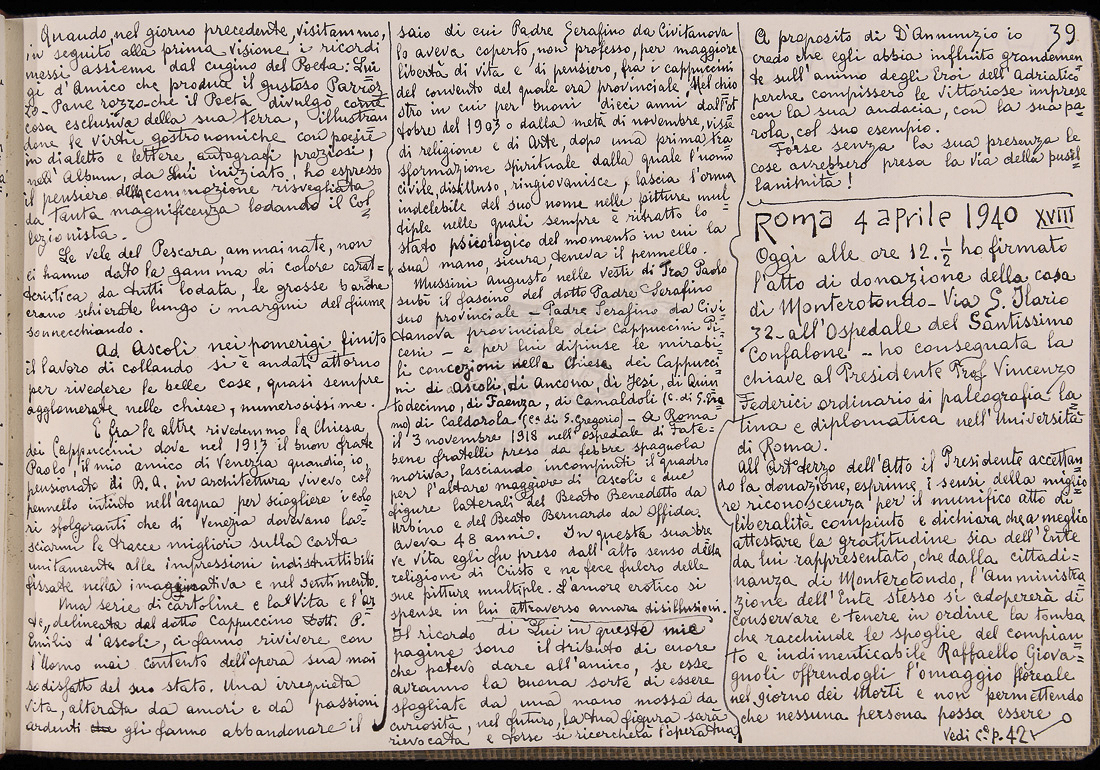 Quando, nel giorno precedente, visitammo,
in seguito alla prima visione i ricordi
messi assieme dal cugino del Poeta: Lui=
gi d'Amico che produce il gustoso Parroz=
zo - Pane rozzo - che il Poeta divulgò come
cosa esclusiva della sua terra, illustran
done le virtù gastronomiche con poesie
in dialetto e lettere, autografi preziosi,
nell'Album, da Lui iniziato, ho espresso
il pensiero della commozione risvegliata
da tanta magnificenza lodando il Col
lezionista.
Le vele del Pescara, ammainate, non
ci hanno dato la gamma di colore carat=
teristica da tutti lodata, le grosse barche
erano schierate lungo i margini del fiume
sonnecchiando.
Ad Ascoli nei pomerigi, finito
il lavoro di collaudo si è andati attorno
per rivedere le belle cose, quasi sempre
agglomerate nelle chiese, numerosissime.
E fra le altre rivedemmo la Chiesa
dei Cappuccini dove nel 1913 il buon frate
Paolo, il mio amico di Venezia quando, io,
pensionato di B.A. in architettura vivevo col
pennello intinto nell'acqua per sciogliere i colo
ri sfolgoranti che di Venezia dovevano la=
sciarmi le tracce migliori sulla carta
unitamente alle impressioni indistruttibili
fissate nella imaginativa e nel sentimento.
Una serie di cartoline e la "Vita e l'Ar
te" delineata dal dotto Cappuccino Dott. P.
Emilio d'Ascoli, ci fanno rivivere con
l'Uomo mai contento dell'opera sua mai
sodisfatto del suo stato. Una irrequieta
vita, alterata da amori e da passioni
ardenti gli fanno abbandonare il
saio di cui Padre Serafino da Civitanova
lo aveva coperto, non professo, per maggiore
libertà di vita e di pensiero, fra i cappuccini
del convento del quale era provinciale. Nel chio
stro in cui per buoni dieci anni dall'ot
tobre del 1903 o dalla metà di novembre, visse
di religione e di Arte, dopo una prima tra
sformazione spirituale dalla quale l'uomo
civile, disilluso, ringiovanisce, lascia l'orma
indelebile del suo nome nelle pitture mul
tiple nelle quali sempre è ritratto lo
stato psicologico del momento in cui la
sua mano, sicura, teneva il pennello.
Mussini Augusto nelle vesti di Fra Paolo
subì il fascino del dotto Padre Serafino
suo provinciale - Padre Serafino da Civi
tanova provinciale dei Cappuccini Pi
ceni - e per lui dipinse le mirabi=
li concezioni nella Chiese dei Cappucci
ni di Ascoli, di Ancona, di Jesi, di Quin
todecimo, di Faenza, di Camaldoli (C. di S. Gia
mo) di Caldarola (Ca. di S. Gregorio) - a Roma
il 3 novembre 1918 nell'Ospedale di Fate=
bene fratelli preso da febbre spagnola
moriva, lasciando incompiuti il quadro
per l'altare maggiore di Ascoli e due
figure laterali del Beato Benedetto da
Urbino e del Beato Bernardo da Offida.
aveva 48 anni. In questa sua bre
ve vita egli fu preso dall'alto senso della
religione di Cristo e ne fece fulcro delle
sue pitture multiple. L'amore erotico si
spense in lui attraverso amare disillusioni.
Il ricordo di Lui in queste mie
pagine sono il tributo di cuore
che potevo dare all'amico, se esse
avranno la buona sorte di essere
sfogliate da una mano mossa da
curiosità, nel futuro, la tua figura sarà
rievocata e forse si ricercherà l'opera tua
39
A proposito di D'Annunzio io
credo che egli abbia influito grandemen
te sull'animo degli Eroi dell'Adriatico
perche compissero le Vittoriose imprese
con la sua audacia, con la sua pa=
rola, col suo esempio.
Forse senza la sua presenza le
cose avrebbero presa la via della pusil
lanimità!
Roma 4 aprile 1940 XVIII
Oggi alle ore 12. ½ ho firmato
l'atto di donazione della casa
di Monterotondo - Via S. Ilario
32 - all'Ospedale del Santissimo
Confalone - ho consegnata la
chiave al Presidente Prof Vincenzo
Federici ordinario di paleografia la=
tina e diplomatica nell'Università
di Roma.
All'Art° terzo dell'Atto il Presidente accettan
do la donazione, esprime i sensi della miglio
re riconoscenza per il munifico atto di
liberalità compiuto e dichiara che a meglio
attestare la gratitudine sia dell'Ente
da lui rappresentato, che dalla cittadi=
nanza di Monterotondo, l'Amministra
zione dell'Ente stesso si adopererà di
conservare e tenere in ordine la tomba
che racchiude le spoglie del compian
to e indimenticabile Raffaello Giova=
gnoli offrendogli l'omaggio floreale
nel giorno dei Morti e non permettendo
che nessuna persona possa essere
Vedi Co. p. 42